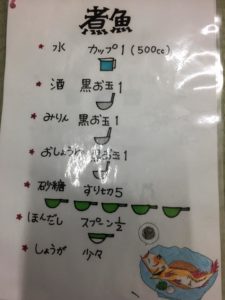 煮魚
水 カップ1(500cc)
酒 黒お玉1
みりん 黒お玉1
おしょうゆ お玉1
砂糖 すり切り5
ほんだし スプーン1/2
しょうが 少々